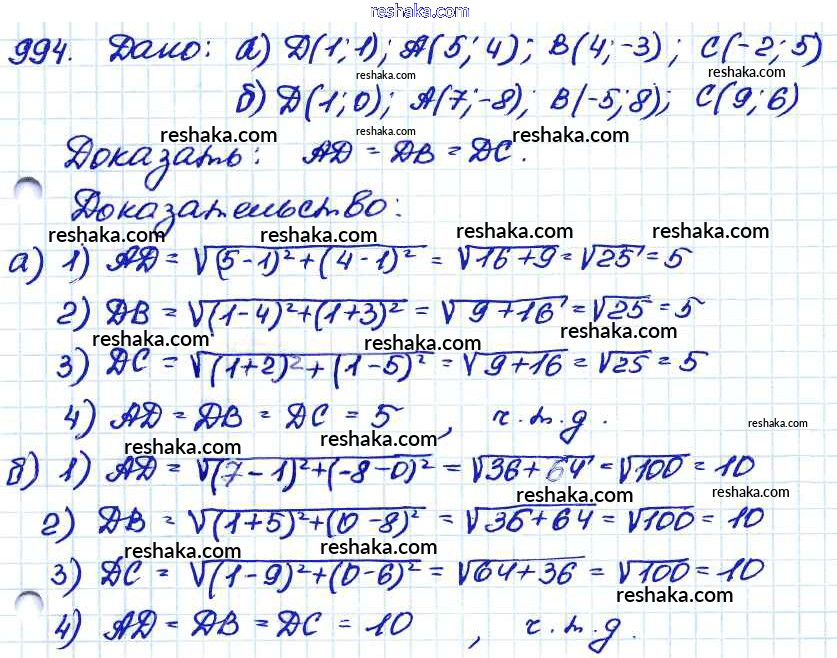 reshaka.com
994. Дано: а) D(1;1); A(5;4); B(4;-3); C(-2;5)
reshaka.com reshaka.com
б) D(1;0); A(7;-8); B(-5;8); C(9;6)
reshaka.com reshaka.com reshaka.com
Доказать: AD = DB = DC.
Доказательство:
reshaka.com reshaka.com reshaka.com reshaka.com
а) 1) AD = √(5-1)²+(4-1)² = √16+9 = √25 = 5
2) DB = √(1-4)²+(1+3)² = √9+16 = √25 = 5
reshaka.com reshaka.com reshaka.com
3) DC = √(1+2)²+(1-5)² = √9+16 = √25 = 5
4) AD = DB = DC = 5, ч.т.д.
reshaka.com reshaka.com reshaka.com
б) 1) AD = √(7-1)²+(-8-0)² = √36+64 = √100 = 10
reshaka.com reshaka.com reshaka.com
2) DB = √(1+5)²+(0-8)² = √36+64 = √100 = 10
reshaka.com reshaka.com reshaka.com
3) DC = √(1-9)²+(0-6)² = √64+36 = √100 = 10
reshaka.com
4) AD = DB = DC = 10, ч.т.д.
reshaka.com reshaka.com